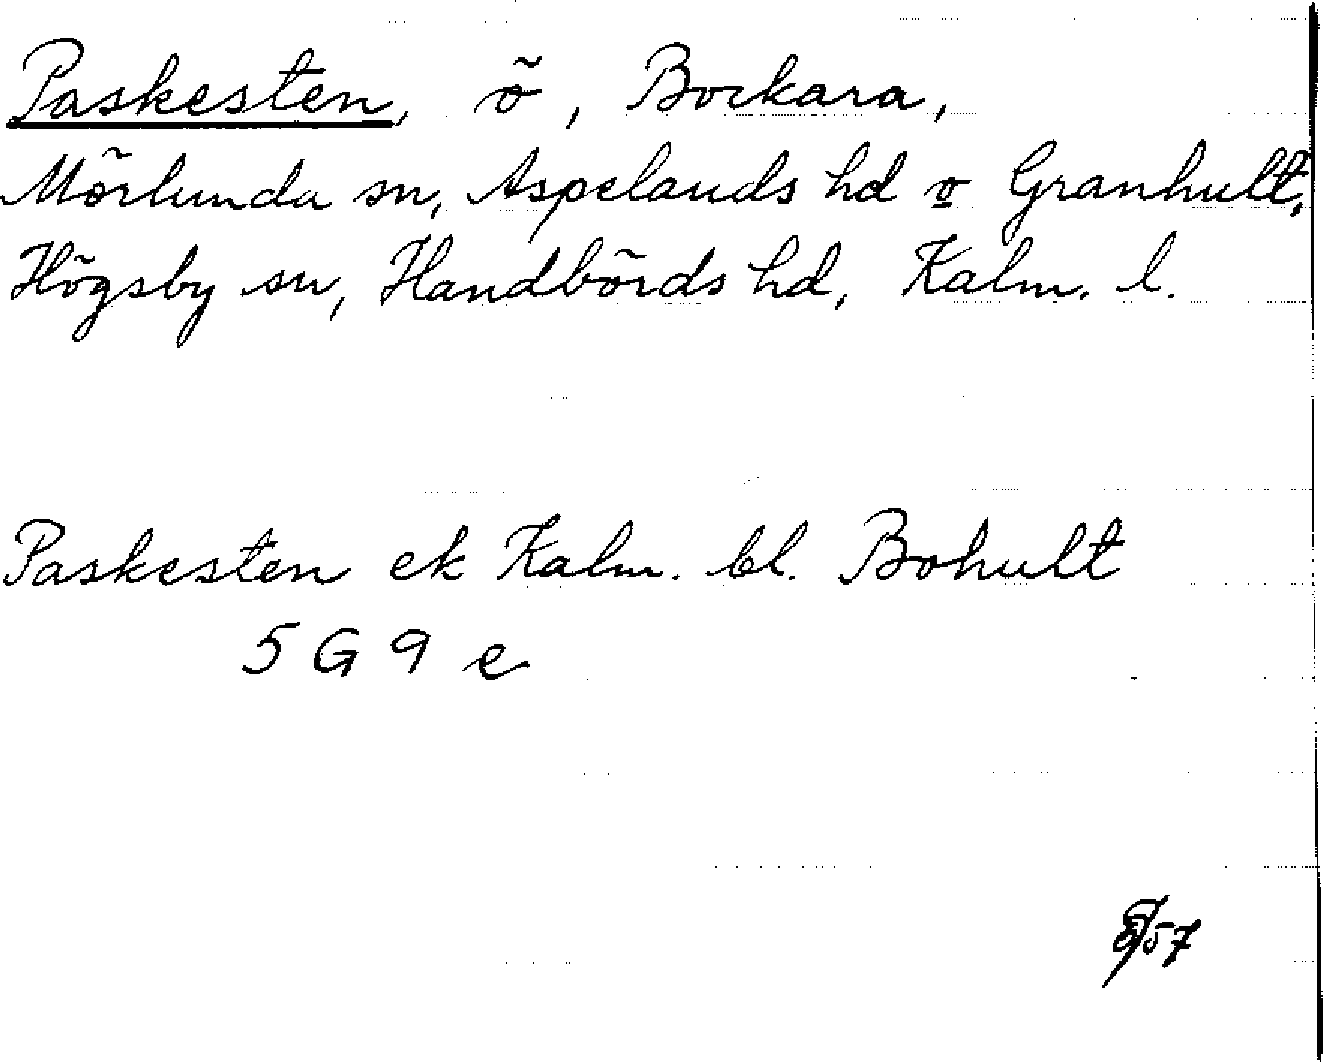 Paskesten, ö, Bockara,
Mörlunda sn, Aspelands hd o Granhult,
Högsby sn, Handbörds hd, Kalm. l.
Paskesten ek Kalm. bl. Bohult
5 G 9 e